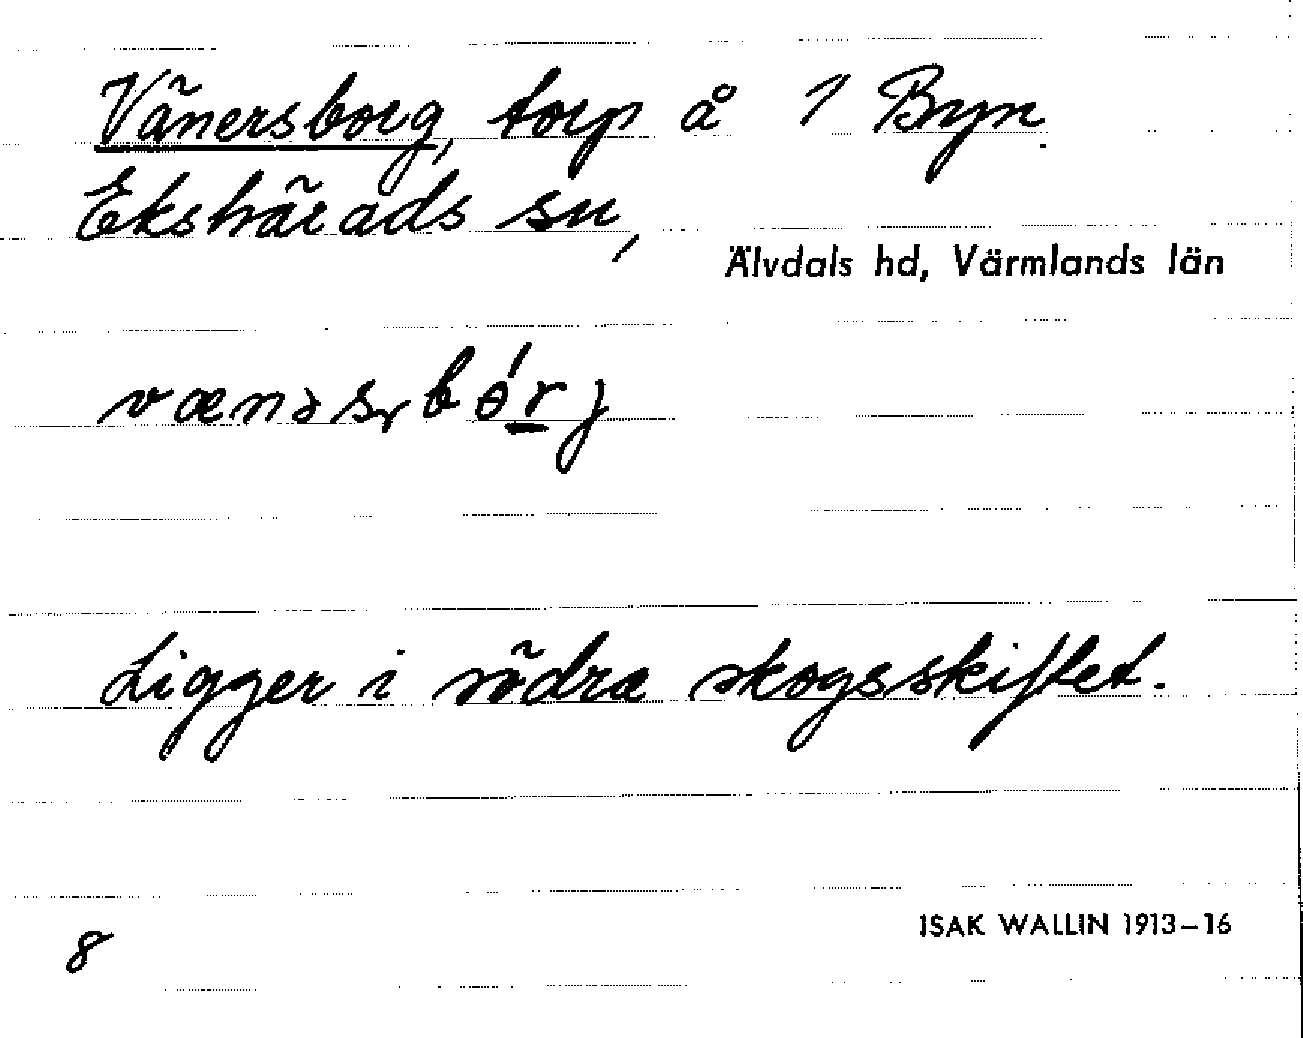 Vänersborg, torp å 1 Byn.
Ekshärads sn,
Älvdals hd, Värmlands län
vænəsbórj
Ligger i södra skogsskiftet.
8
ISAK WALLIN 1913–16